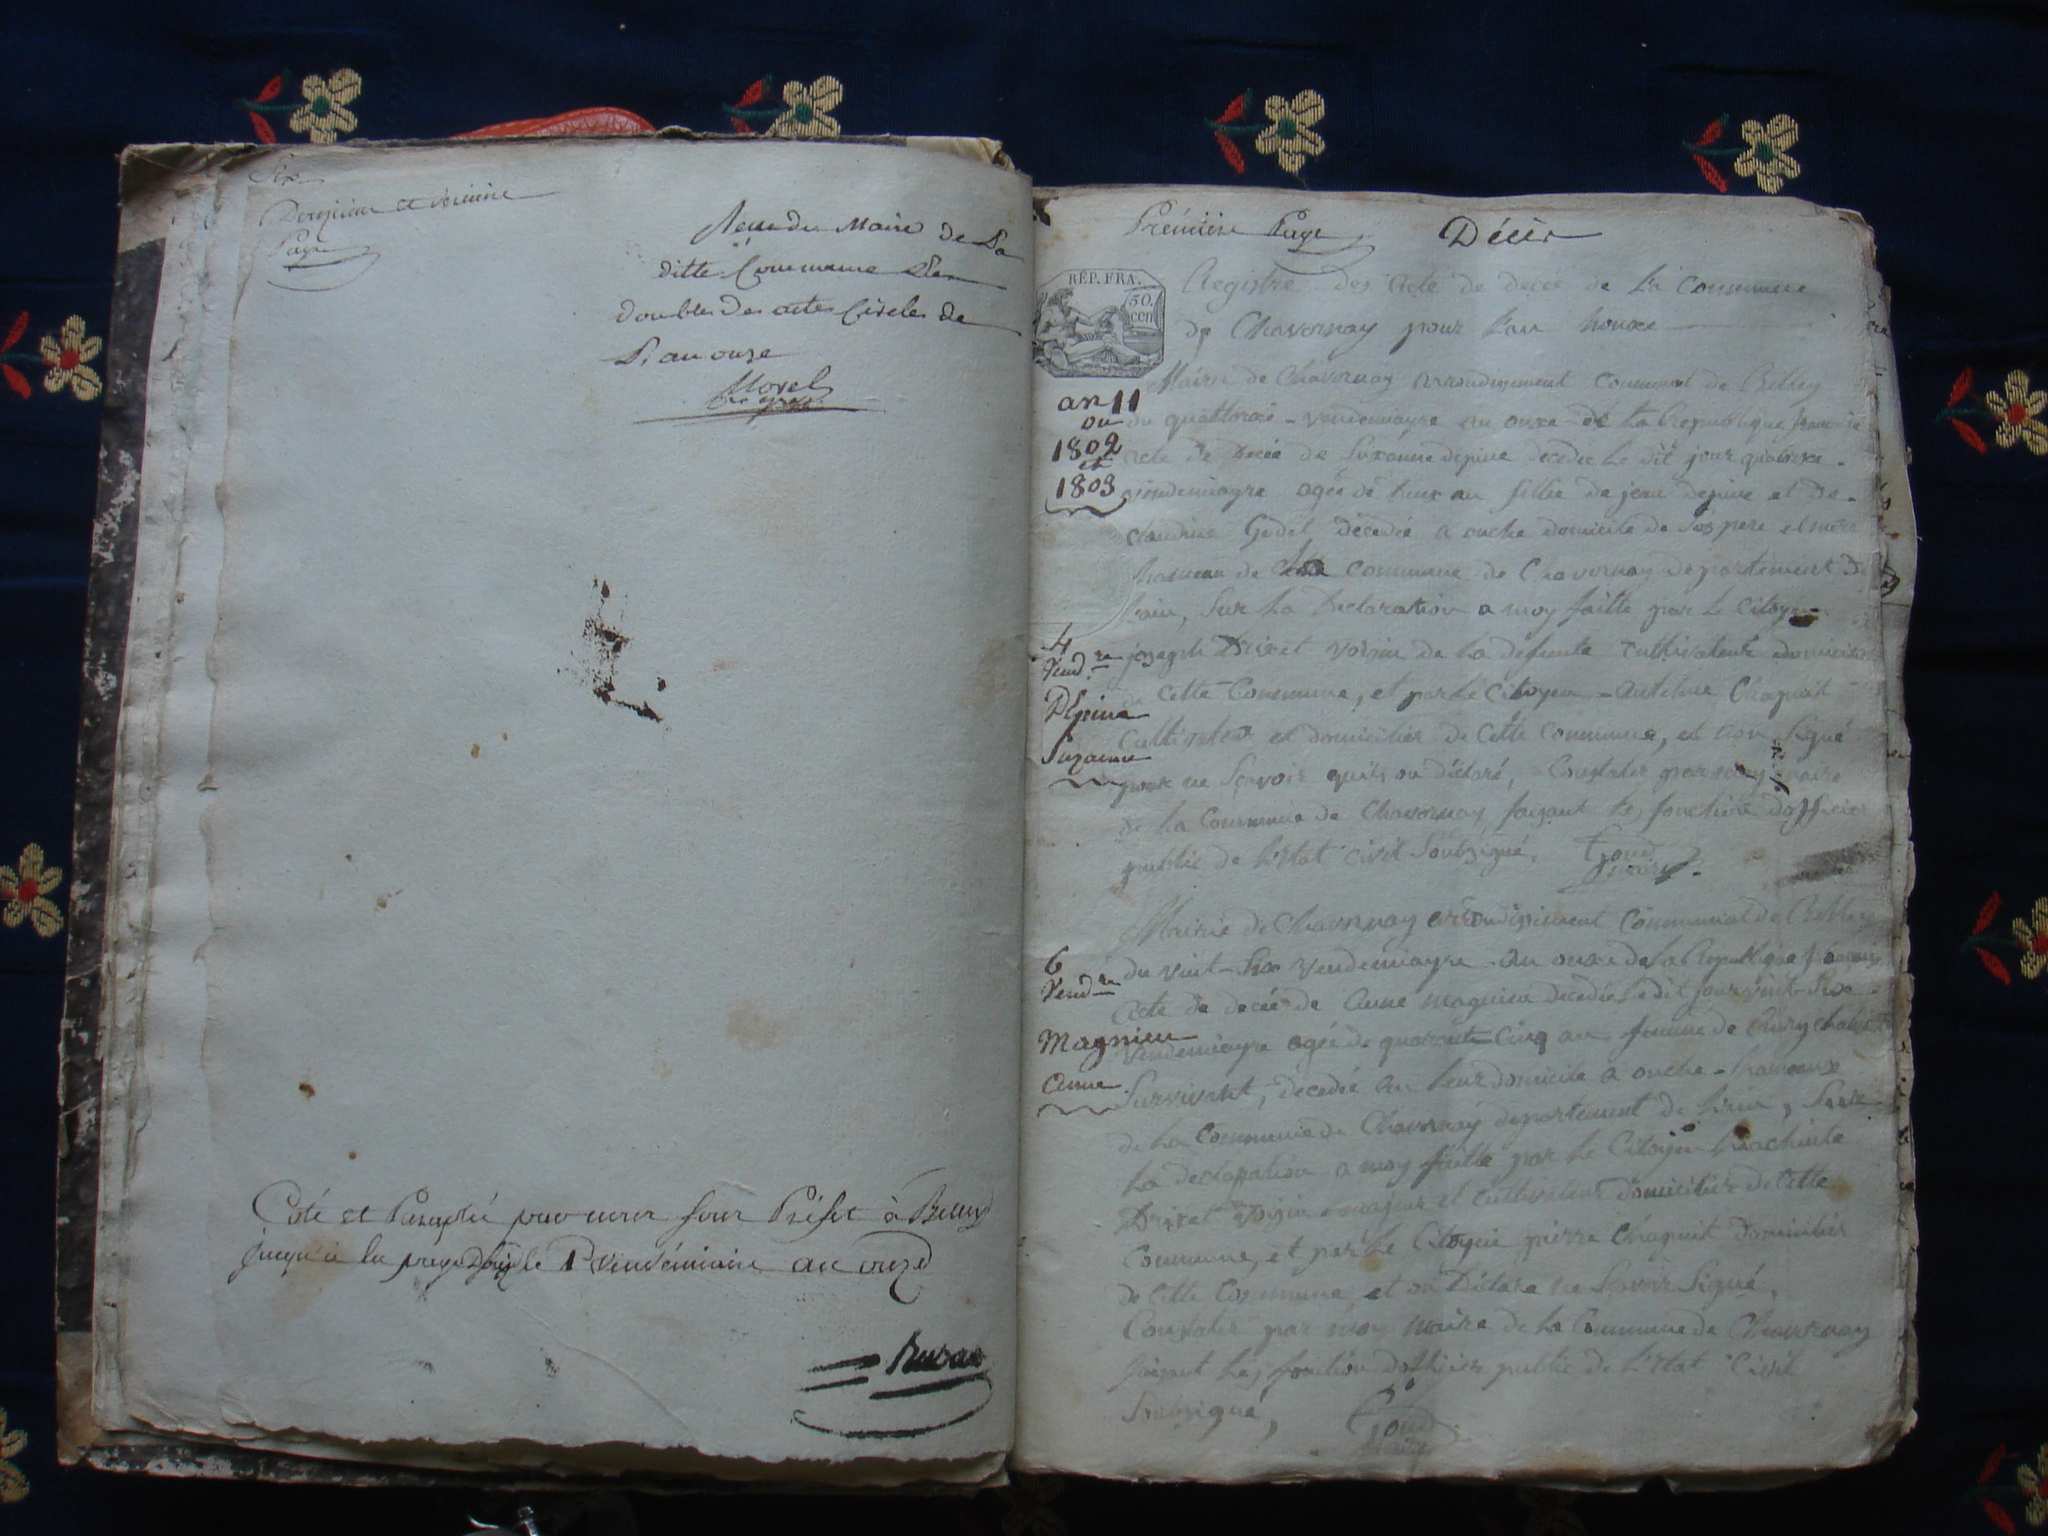 Six
Dernière
Page
Reçu du Maire de La
ditte Commune Les
doubles des actes Civiles de
L'an onze
Morel
Coté et Paraphé par nous sous Préfet à Belley
jusqu'à la page le 1er Vendémiaire an onze
Rubat
Prémiére Page Décès
RÉP. FRA.
50. cen
Registre des Acte de decée de La Commune
de Chavornay pour Lan honze
Mairie de Chavornay arrondissement Communal de Belley
an 11
ou
1802
et
1803
du quattorze vendemiayre an onze de La Republique francaise
acte de Decée de Suzanne depine decedee Le dit jour quatorze
vendemiayre agée de deux an fillie de jean depine et de
claudine Godet décedée a ouche domicile de Ses pere et mere
hameau de La Commune de Chavornay departement de
Lain, Sur La Declaration a moy faitte par Le Citoyen
4
Vend.re
DEpine
Suzanne
joseph Drivet voisin de La defunte Cultivateur domicilié
de Cette Commune, et par Le Citoyen Antelme Chapuit
Cultivateur et domicilier de Cette Commune, et non Signé
pour ne Scavoir quits on déclaré, Constater par moy maire
de La Commune de Chavornay faizant Les fonction dofficier
public de L'Etat Civil Soubzigné,
Mairie de Chavornay arrondissement Communal de Belley
6
Vend.re
Magnieu
Anne
du vint Six vendemiayre an onze de La Republique francaise
Acte de decée de Anne magnieu decedée Le dit jour vint Six
vendemiayre agée de quarante Cinq an femme de
Survivant, decedée an Leur domicile a ouche hameaux
de La Commune de Chavornay departement de Lain, Sur
La declaration a moy faitte par Le Citoyen
Drivet voisin majeur et cultivateur domicilier de Cette
Commune, et par Le Citoyen pierre Chapuit domicilier
de Cette Commune et on Déclare ne Scavoir Signé,
Constater par moy Maire de La Commune de Chavornay
faizant Les fonction dofficier public de L'Etat Civil
Soubzigné,